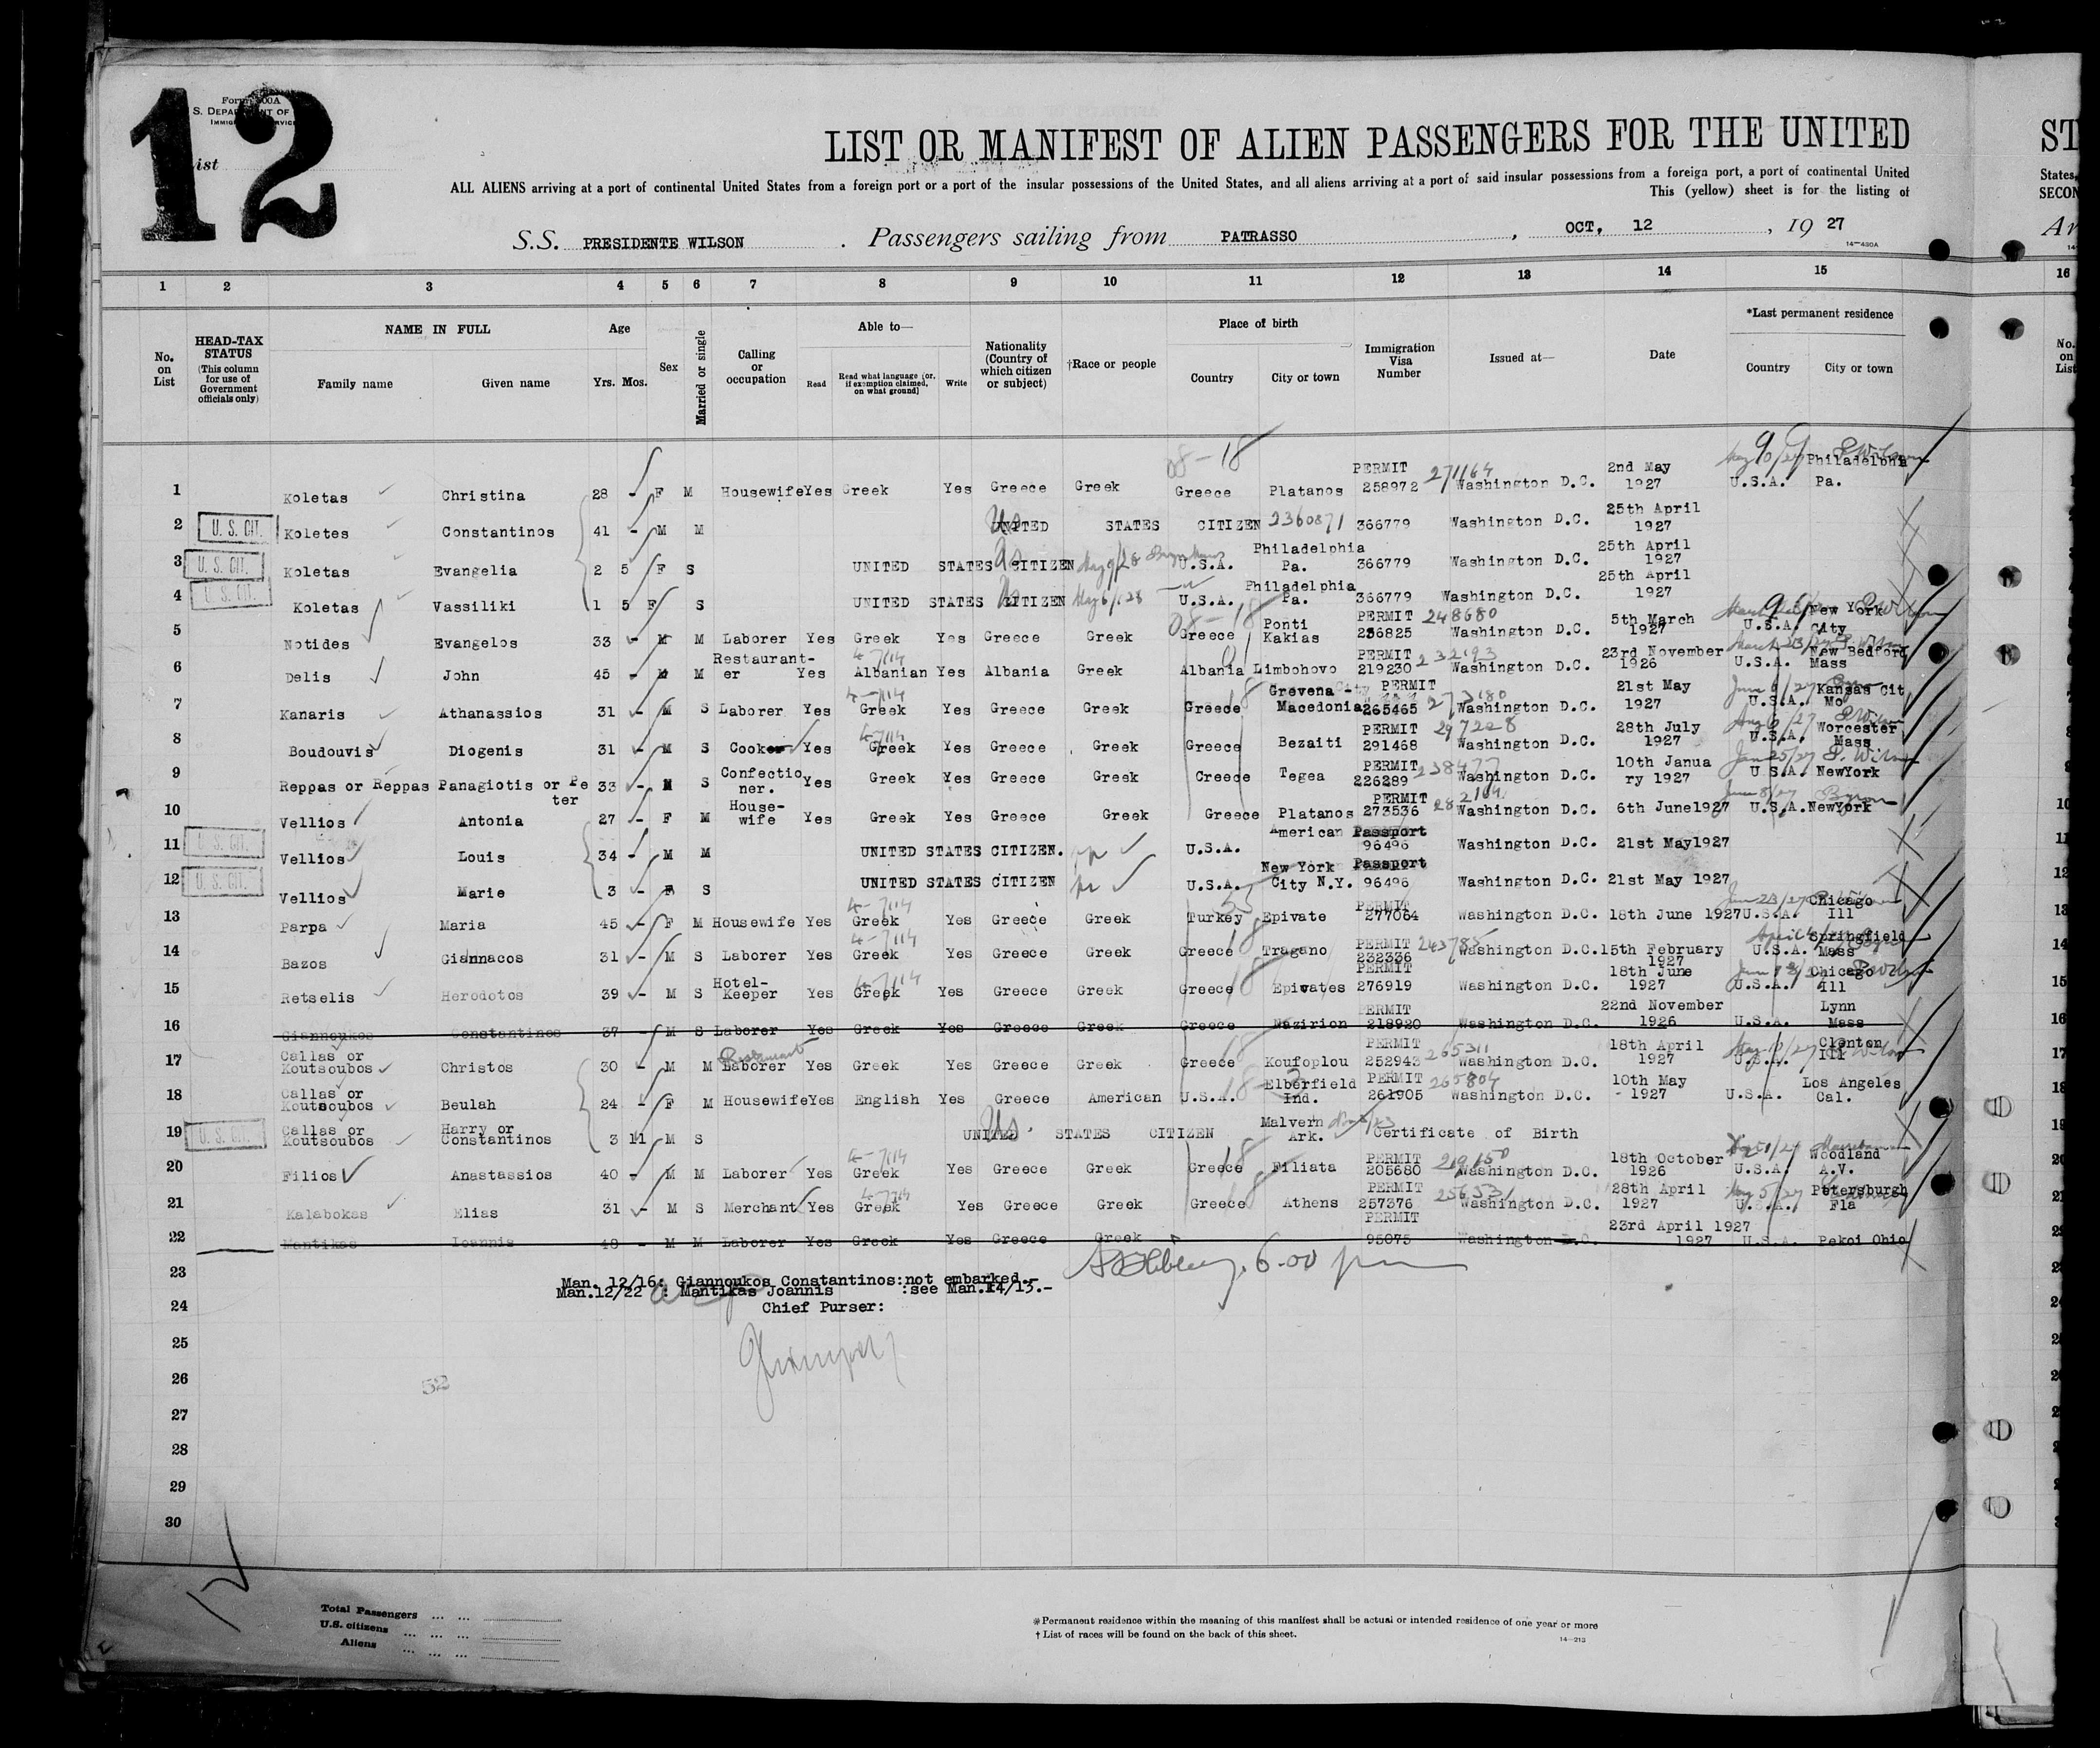 12
Form 500A
S. DEPARTMENT OF
IMMIGRATION SERVICE
ist
LIST OR MANIFEST OF ALIEN PASSENGERS FOR THE UNITED
ST
ALL ALIENS arriving at a port of continental United States from a foreign port or a port of the insular possessions of the United States, and all aliens arriving at a port of said insular possessions from a foreign port, a port of continental United
States,
This (yellow) sheet is for the listing of
SECON
S.S. PRESIDENTE WILSON . Passengers sailing from PATRASSO , OCT, 12 , 19 27
Ar
14—430A
1 2 3 4 5 6 7 8 9 10 11 12 13 14 15 16
No. on List
HEAD-TAX STATUS (This column for use of Government officials only)
NAME IN FULL
Family name Given name
Age
Yrs. Mos.
Sex
Married or single
Calling or occupation
Able to—
Read Read what language (or, if exemption claimed, on what ground) Write
Nationality (Country of which citizen or subject)
†Race or people
Place of birth
Country City or town
Immigration Visa Number
Issued at—
Date
*Last permanent residence
Country City or town
No. on List
08-18
1 Koletas Christina 28 - F M Housewife Yes Greek Yes Greece Greek Greece Platanos PERMIT 258972 271164 Washington D.C. 2nd May 1927 U.S.A. Philadelphia Pa.
2 U. S. CIT. Koletes Constantinos 41 - M M UNITED STATES CITIZEN 2360871 366779 Washington D.C. 25th April 1927
3 U. S. CIT. Koletas Evangelia 2 5 F S UNITED STATES CITIZEN U.S.A. Philadelphia Pa. 366779 Washington D.C. 25th April 1927
4 U. S. CIT. Koletas Vassiliki 1 5 F S UNITED STATES CITIZEN May 6/28 U.S.A. Philadelphia Pa. 366779 Washington D.C. 25th April 1927
5 Notides Evangelos 33 - M M Laborer Yes Greek Yes Greece Greek Greece Ponti Kakias PERMIT 236825 248680 Washington D.C. 5th March 1927 U.S.A. New York City
6 Delis John 45 - M M Restaurant-er Yes 4-7/14 Albanian Yes Albania Greek Albania Limbohovo PERMIT 219230 232193 Washington D.C. 23rd November 1926 U.S.A. New Bedford Mass
7 Kanaris Athanassios 31 - M S Laborer Yes 4-7/14 Greek Yes Greece Greek Greece Grevena - Macedonia City PERMIT 265465 273180 Washington D.C. 21st May 1927 U.S.A. Kansas Cit Mo
8 Boudouvis Diogenis 31 - M S Cooker Yes 4-7/14 Greek Yes Greece Greek Greece Bezaiti PERMIT 291468 297228 Washington D.C. 28th July 1927 U.S.A. Worcester Mass.
9 Reppas or Reppas Panagiotis or Pe ter 33 - M S Confectio ner. Yes Greek Yes Greece Greek Creece Tegea PERMIT 226289 238477 Washington D.C. 10th Janua ry 1927 U.S.A. NewYork
10 Vellios Antonia 27 - F M House-wife Yes Greek Yes Greece Greek Greece Platanos PERMIT 273536 282164 Washington D.C. 6th June1927 U.S.A. NewYork
11 U. S. CIT. Vellios Louis 34 - M M UNITED STATES CITIZEN. U.S.A. American Passport 96496 Washington D.C. 21st May1927
12 U. S. CIT. Vellios Marie 3 - F S UNITED STATES CITIZEN U.S.A. New York City N.Y. Passport 96496 Washington D.C. 21st May 1927
13 Parpa Maria 45 - F M Housewife Yes 4-7/14 Greek Yes Greece Greek Turkey Epivate PERMIT 277064 Washington D.C. 18th June 1927 U.S.A. Chicago Ill
14 Bazos Giannacos 31 - M S Laborer Yes 4-7/14 Greek Yes Greece Greek Greece Tragano PERMIT 232336 243785 Washington D.C. 15th February 1927 U.S.A. Springfield Mass
15 Retselis Herodotos 39 - M S Hotel-Keeper Yes 4-7/14 Greek Yes Greece Greek Greece Epivates PERMIT 276919 Washington D.C. 18th June 1927 U.S.A. Chicago Ill
16 Giannoukos Constantinos 37 - M S Laborer Yes Greek Yes Greece Greek Greece Nazirion PERMIT 218920 Washington D.C. 22nd November 1926 U.S.A. Lynn Mass
17 Callas or Koutsoubos Christos 30 - M M Restaurant Laborer Yes Greek Yes Greece Greek Greece Koufoplou PERMIT 252943 265311 Washington D.C. 18th April 1927 U.S.A. Clenton Ill
18 Callas or Koutsoubos Beulah 24 - F M Housewife Yes English Yes Greece American U.S.A. Elberfield Ind. PERMIT 261905 265804 Washington D.C. 10th May 1927 U.S.A. Los Angeles Cal.
19 U. S. CIT. Callas or Koutsoubos Harry or Constantinos 3 11 M S UNITED STATES CITIZEN Malvern Ark. Certificate of Birth
20 Filios Anastassios 40 - M M Laborer Yes 4-7/14 Greek Yes Greece Greek Greece Filiata PERMIT 205680 219150 Washington D.C. 18th October 1926 U.S.A. Woodland A.V.
21 Kalabokas Elias 31 - M S Merchant Yes 4-7/14 Greek Yes Greece Greek Greece Athens PERMIT 257376 256531 Washington D.C. 28th April 1927 U.S.A. Petersburgh Fla
22 Mantikas Ioannis 48 - M M Laborer Yes Greek Yes Greece Greek PERMIT 95075 Washington D.C. 23rd April 1927 1927 U.S.A. Pekoi Ohio
6-00 pm
23 Man. 12/16: Giannoukos Constantinos:not embarked.-
Man.12/22 : Mantikas Joannis :see Man.14/13.-
24 Chief Purser:
25
26
52
27
28
29
30
12
Total Passengers ... ...
U.S. citizens ... ... ...
Aliens ... ... ...
*Permanent residence within the meaning of this manifest shall be actual or intended residence of one year or more
† List of races will be found on the back of this sheet.
14—213